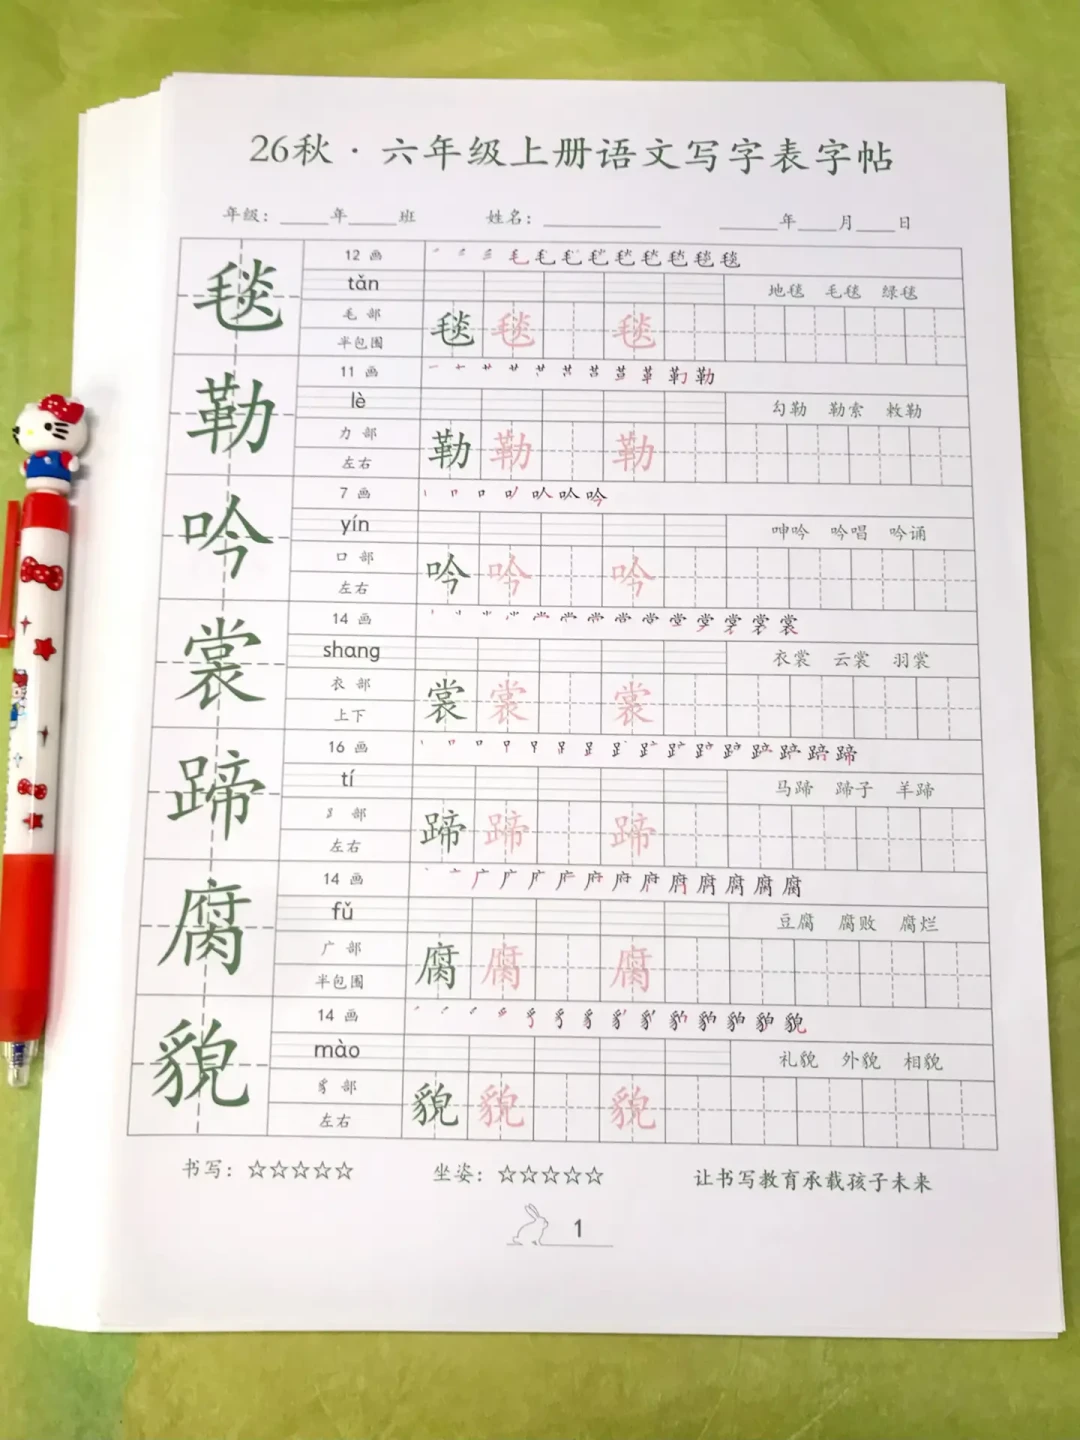 26秋·六年级上册语文写字表字帖
年级：_____年_____班 姓名：____________ ______年____月____日
毯
12 画
tǎn
地毯 毛毯 绿毯
毛 部
毯 毯 毯
半包围
勒
11 画
lè
勾勒 勒索 敕勒
力 部
勒 勒 勒
左右
吟
7 画
yín
呻吟 吟唱 吟诵
口 部
吟 吟 吟
左右
裳
14 画
shang
衣裳 云裳 羽裳
衣 部
裳 裳 裳
上下
蹄
16 画
tí
马蹄 蹄子 羊蹄
⻊ 部
蹄 蹄 蹄
左右
腐
14 画
fǔ
豆腐 腐败 腐烂
广 部
腐 腐 腐
半包围
貌
14 画
mào
礼貌 外貌 相貌
豸 部
貌 貌 貌
左右
书写：☆☆☆☆☆ 坐姿：☆☆☆☆☆ 让书写教育承载孩子未来
1